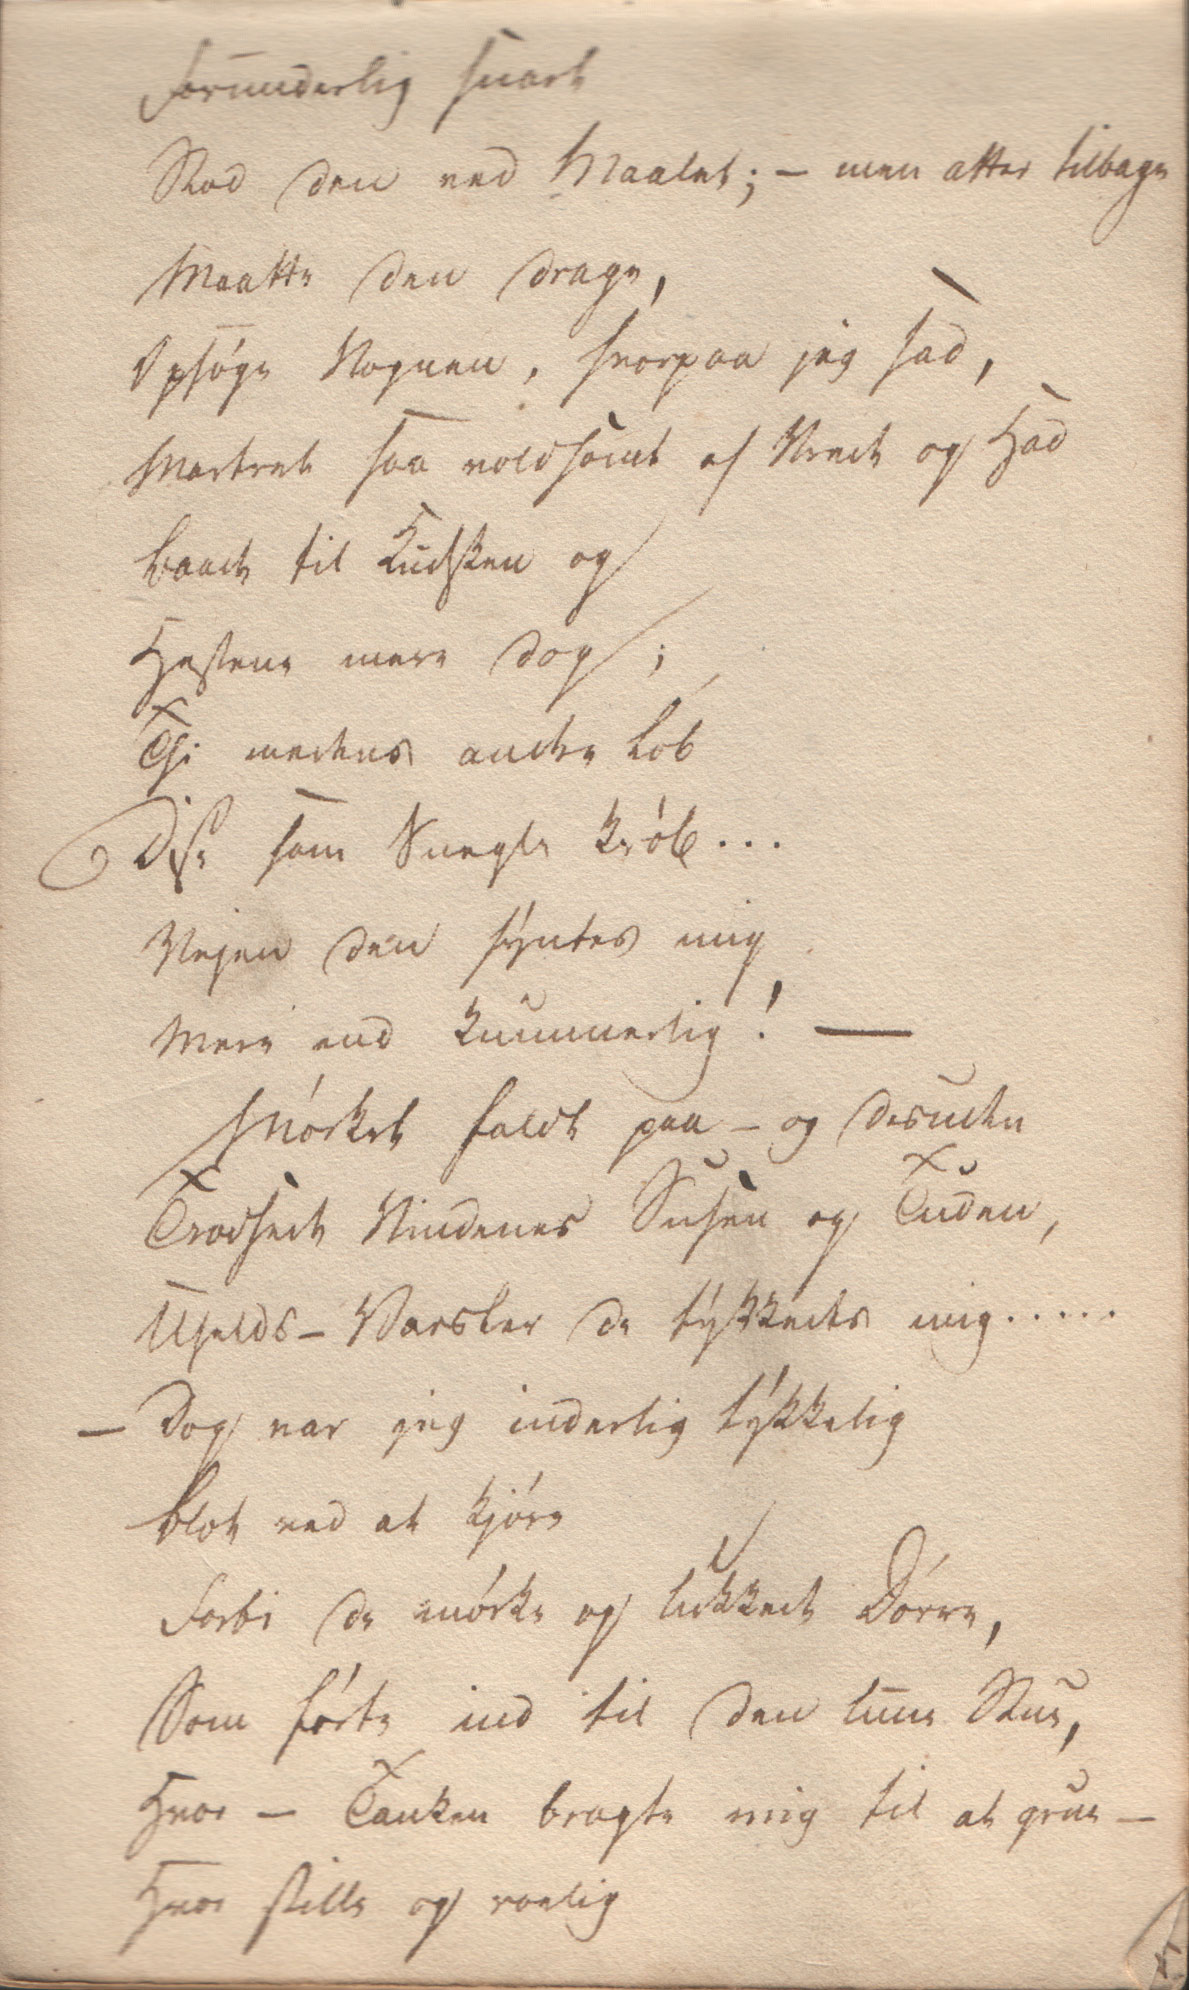 Forunderlig snart
Stod den ved Maalet; – men atter tilbage
Maatte den drage,
Opsøge Vognen, hvorpaa jeg sad,
Martret saa voldsomt af Vrede og Had
baade til Kudsken og
Hestene mere dog;
Thi medens andre løb
Disse som Snegle krøb...
Vejen den syntes mig
Mere end kummerlig! —
Mørket faldt paa – og desuden
Trodsede Vindenes Susen og Tuden,
Uhelds-Varsler de tykkedes mig.....
– Dog var jeg inderlig lykkelig
blot ved at kjøre
Forbi de mørke og lukkede Dørre,
Som førte ind til den lune Stue,
Hvor – Tanken bragte mig til at grue –
Hvor stille og roelig